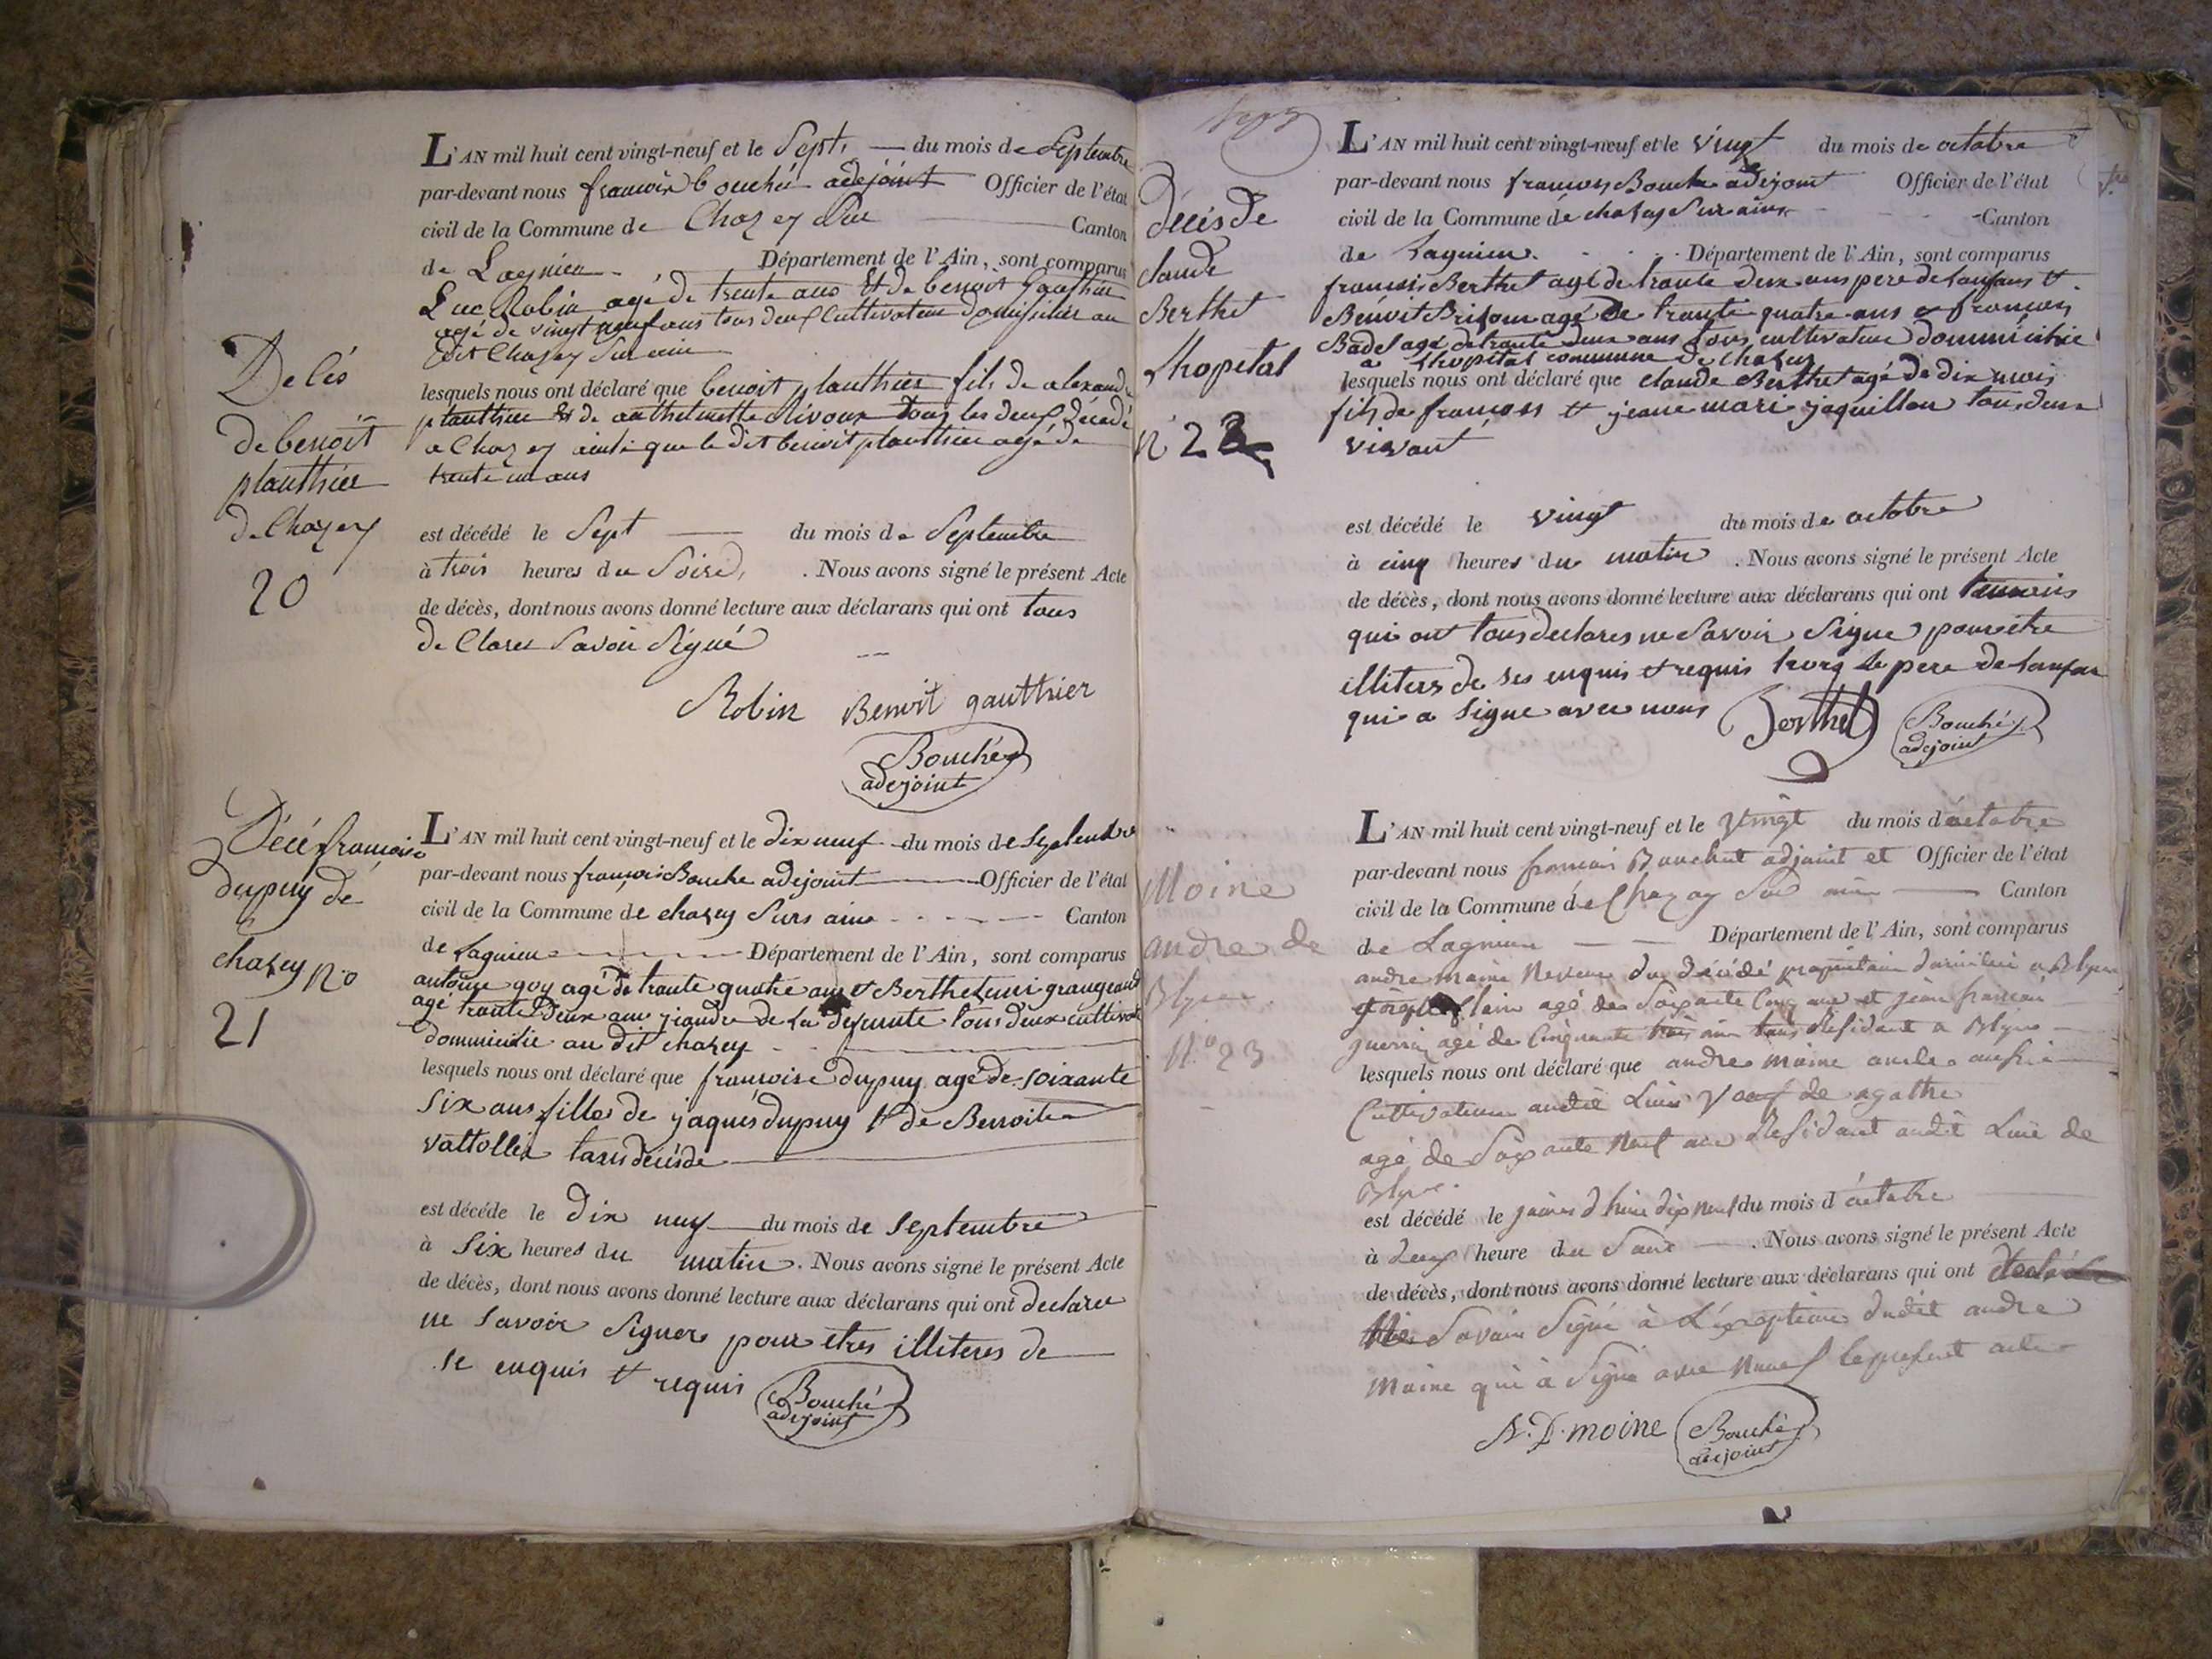 Delés
de benoit
planthier
de Chazey
20
L'AN mil huit cent vingt-neuf et le Sept. du mois de Septembre
par-devant nous francois bouché adejoint Officier de l'état
civil de la Commune de Chazey Canton
de Lagnieu Département de l'Ain, sont comparus
Luc Robin agé de trente ans Et de benoit Gauthier
agé de vingt neuf ans tous deux Cultivateur domisilier au
dit Chazey Sur ain
lesquels nous ont déclaré que benoit planthier fils de alexandre
planthier & de anthelmette Rivoux tous les deux décédé
a Chazey ainsi que le dit benoit planthier agé de
trente un ans
est décédé le Sept du mois de Septembre
à trois heures du Soire. Nous avons signé le présent Acte
de décès, dont nous avons donné lecture aux déclarans qui ont tous
de Clarer Savoir Signé
Robin Benoit gauthier
Bouché
adejoint
Décé francoise
dupuy de
chazey No
21
L'AN mil huit cent vingt-neuf et le dix neuf du mois de Septembre
par-devant nous françois Bouche adejoint Officier de l'état
civil de la Commune de chazey Surs ain Canton
de Lagnieu Département de l'Ain, sont comparus
antoine goy agé de trante quatre ans & Berthelmi grangeand
agé trante deux ans jeandre de la defunte tous deux cultivate
dommicilie au dit chazey
lesquels nous ont déclaré que francoise dupuy agé de soixante
six ans filles de jaques dupuy & de Benoite
vattollier tous décéde
est décéde le dix neuf du mois de septembre
à six heures du matin. Nous avons signé le présent Acte
de décès, dont nous avons donné lecture aux déclarans qui ont declarer
ne savoir Signer pour etres illiteres de
se enquis & requis
Bouché
adejoint
décés de
claude
Berthet
Lhopital
n° 22
L'AN mil huit cent vingt-neuf et le vingt du mois de octobre
par-devant nous francois Bouche adejoint Officier de l'état
civil de la Commune de chazey Sur ain Canton
de Lagnieu. Département de l'Ain, sont comparus
francois Berthet agé de trante deux ans pere de lanfans &
Benoit Brison agé de trante quatre ans & francois
Badel agé de trante deux ans tous cultivateur dommicilie
a Lhopital commune de Chazey
lesquels nous ont déclaré que claude Berthet agé de dix mois
fils de francois & jeane mari jaquillon tous deux
vivant
est décédé le vingt du mois de octobre
à cinq heures du matin. Nous avons signé le présent Acte
de décès, dont nous avons donné lecture aux déclarans qui ont temoins
qui ont tous declares ne Savoir Signe pour etre
illiters de ses enquis & requis hors le pere de lanfan
qui a Signe avec nous
Berthet
Bouché
adejoint
Moine
andre de
Blyes
N° 23
L'AN mil huit cent vingt-neuf et le Vingt du mois d'octobre
par-devant nous francois Bouchet adjoint et Officier de l'état
civil de la Commune de Chazey Sur ain Canton
de Lagnieu Département de l'Ain, sont comparus
andre moine Neveu du décédé propriétaire domicilié a Blyes
agé de Soixante Cinq ans et jean francois
guerrin agé de Cinquante trois ans tous Residant a Blyes
lesquels nous ont déclaré que andre moine oncle aussi
Cultivateur audit Lieu Veuf de agathe
agé de Soixante Neuf ans Residant audit Lieu de
Blyes.
est décédé le jours d'hier dix neuf du mois d'octobre
à deux heure du Soire. Nous avons signé le présent Acte
de décès, dont nous avons donné lecture aux déclarans qui ont
Savoir Signé à L'éxception dudit andre
Moine qui à Signé avec Nous le present acte
A. D. moine
Bouché
adejoint